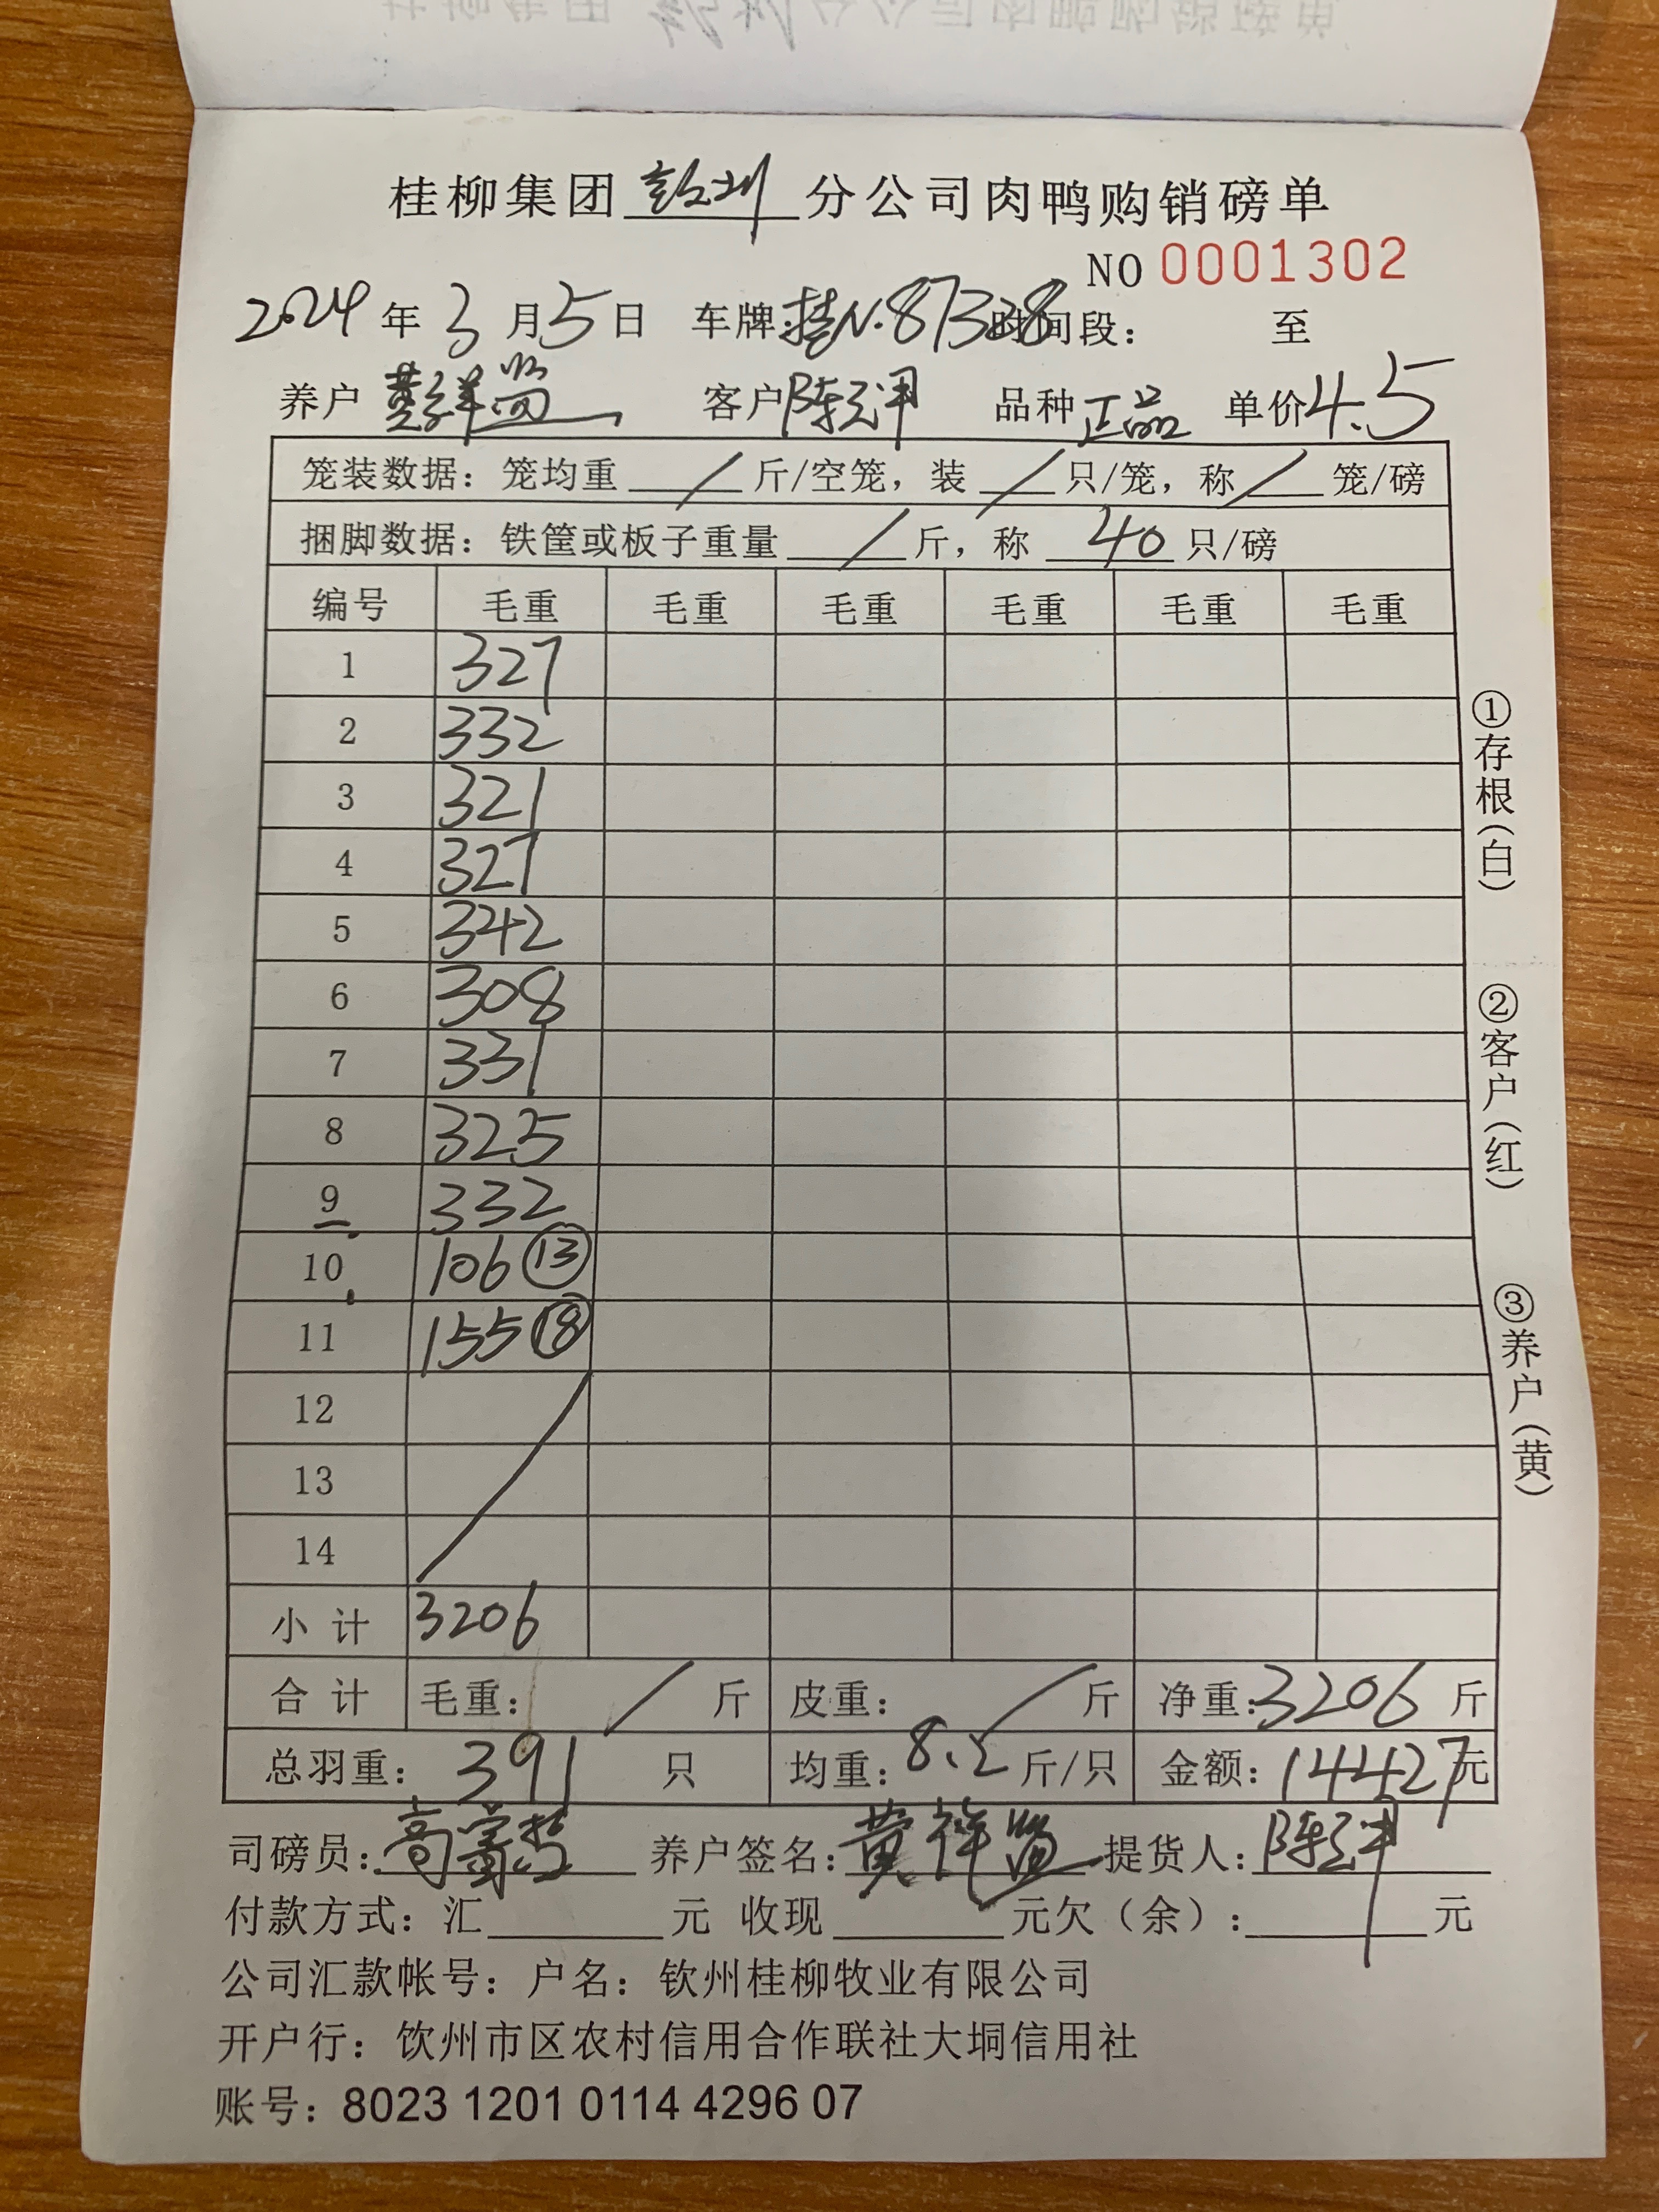 桂柳集团 钦州 分公司肉鸭购销磅单
NO 0001302
2024 年 3 月 5 日 车牌:桂N.87328 时间段: 至
养户 黄祥 客户 陈 品种 正品 单价 4.5
笼装数据:笼均重 / 斤/空笼,装 / 只/笼,称 / 笼/磅
捆脚数据:铁筐或板子重量 / 斤,称 40 只/磅
编号 毛重 毛重 毛重 毛重 毛重 毛重
1 327
2 332
3 321
4 327
5 342
6 308
7 331
8 325
9 332
10 106 ⑬
11 155 ⑱
12
13
14
小计 3206
合计 毛重: / 斤 皮重: / 斤 净重:3206 斤
总羽重: 391 只 均重:8.2 斤/只 金额:14427元
司磅员:高 养户签名:黄祥 提货人:陈
付款方式:汇 元 收现 元欠(余): 元
公司汇款帐号:户名:钦州桂柳牧业有限公司
开户行:饮州市区农村信用合作联社大垌信用社
账号:8023 1201 0114 4296 07
①存根(白)
②客户(红)
③养户(黄)